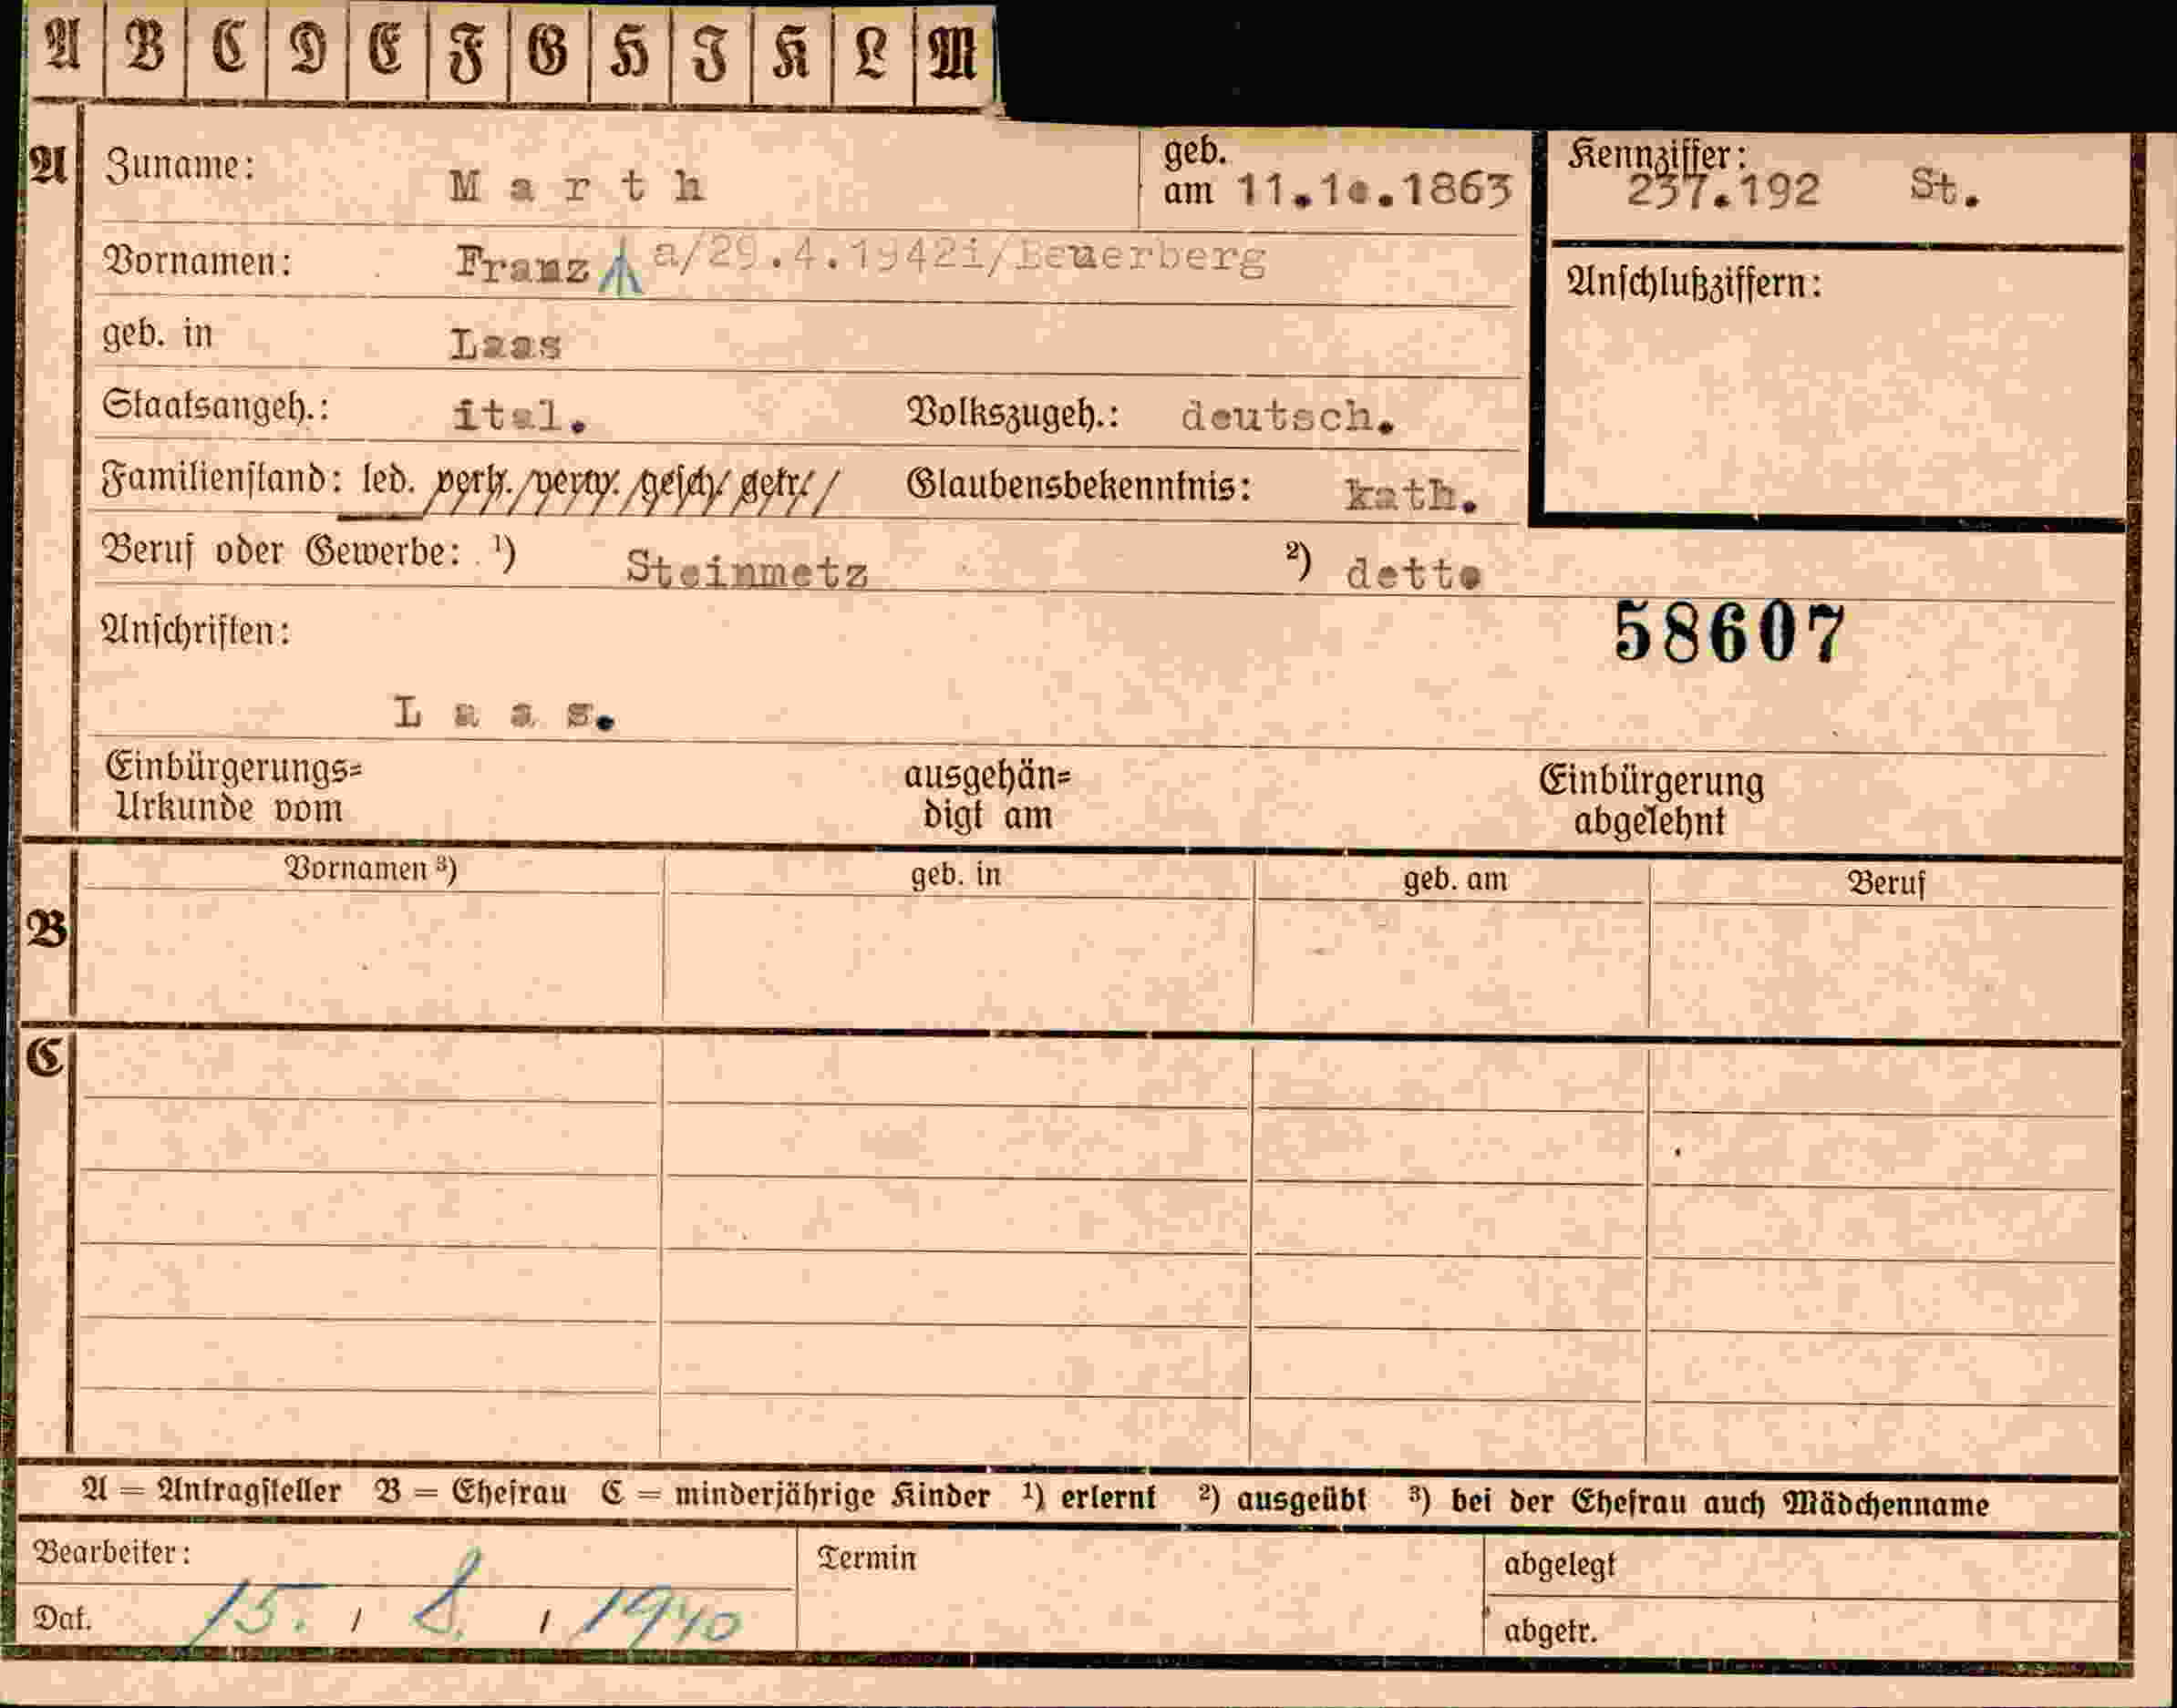 A B C D E F G H I K L M
A Zuname: Marth geb. am 11.10.1863 Kennziffer: 237.192 St.
Vornamen: Franz a/29.4.1942i/Beuerberg Anschlußziffern:
geb. in Laas
Staatsangeh.: ital. Volkszugeh.: deutsch.
Familienstand: led. verh. verw. gesch. getr. Glaubensbekenntnis: kath.
Beruf oder Gewerbe: 1) Steinmetz 2) detto
Anschriften: 58607
Laas.
Einbürgerungs= ausgehän= Einbürgerung
Urkunde vom digt am abgelehnt
Vornamen 3) geb. in geb. am Beruf
B
C
A = Antragsteller B = Ehefrau C = minderjährige Kinder 1) erlernt 2) ausgeübt 3) bei der Ehefrau auch Mädchenname
Bearbeiter: Termin abgelegt
Dat. 15. / 8. / 1940 abgetr.